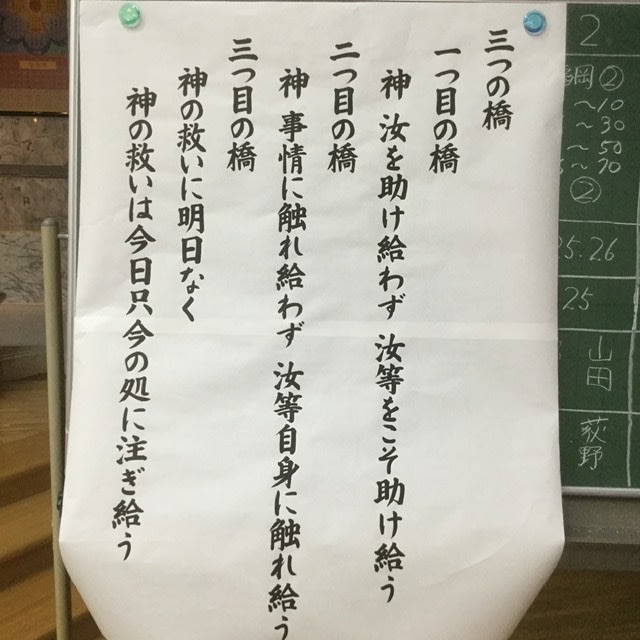 三つの橋
一つ目の橋
神 汝を助け給わず 汝等をこそ助け給う
二つ目の橋
神 事情に触れ給わず 汝等自身に触れ給う
三つ目の橋
神の救いに明日なく
神の救いは今日只今の処に注ぎ給う
2
岡②
~10
~30
~50
~70
②
25.26
25
山田
荻野